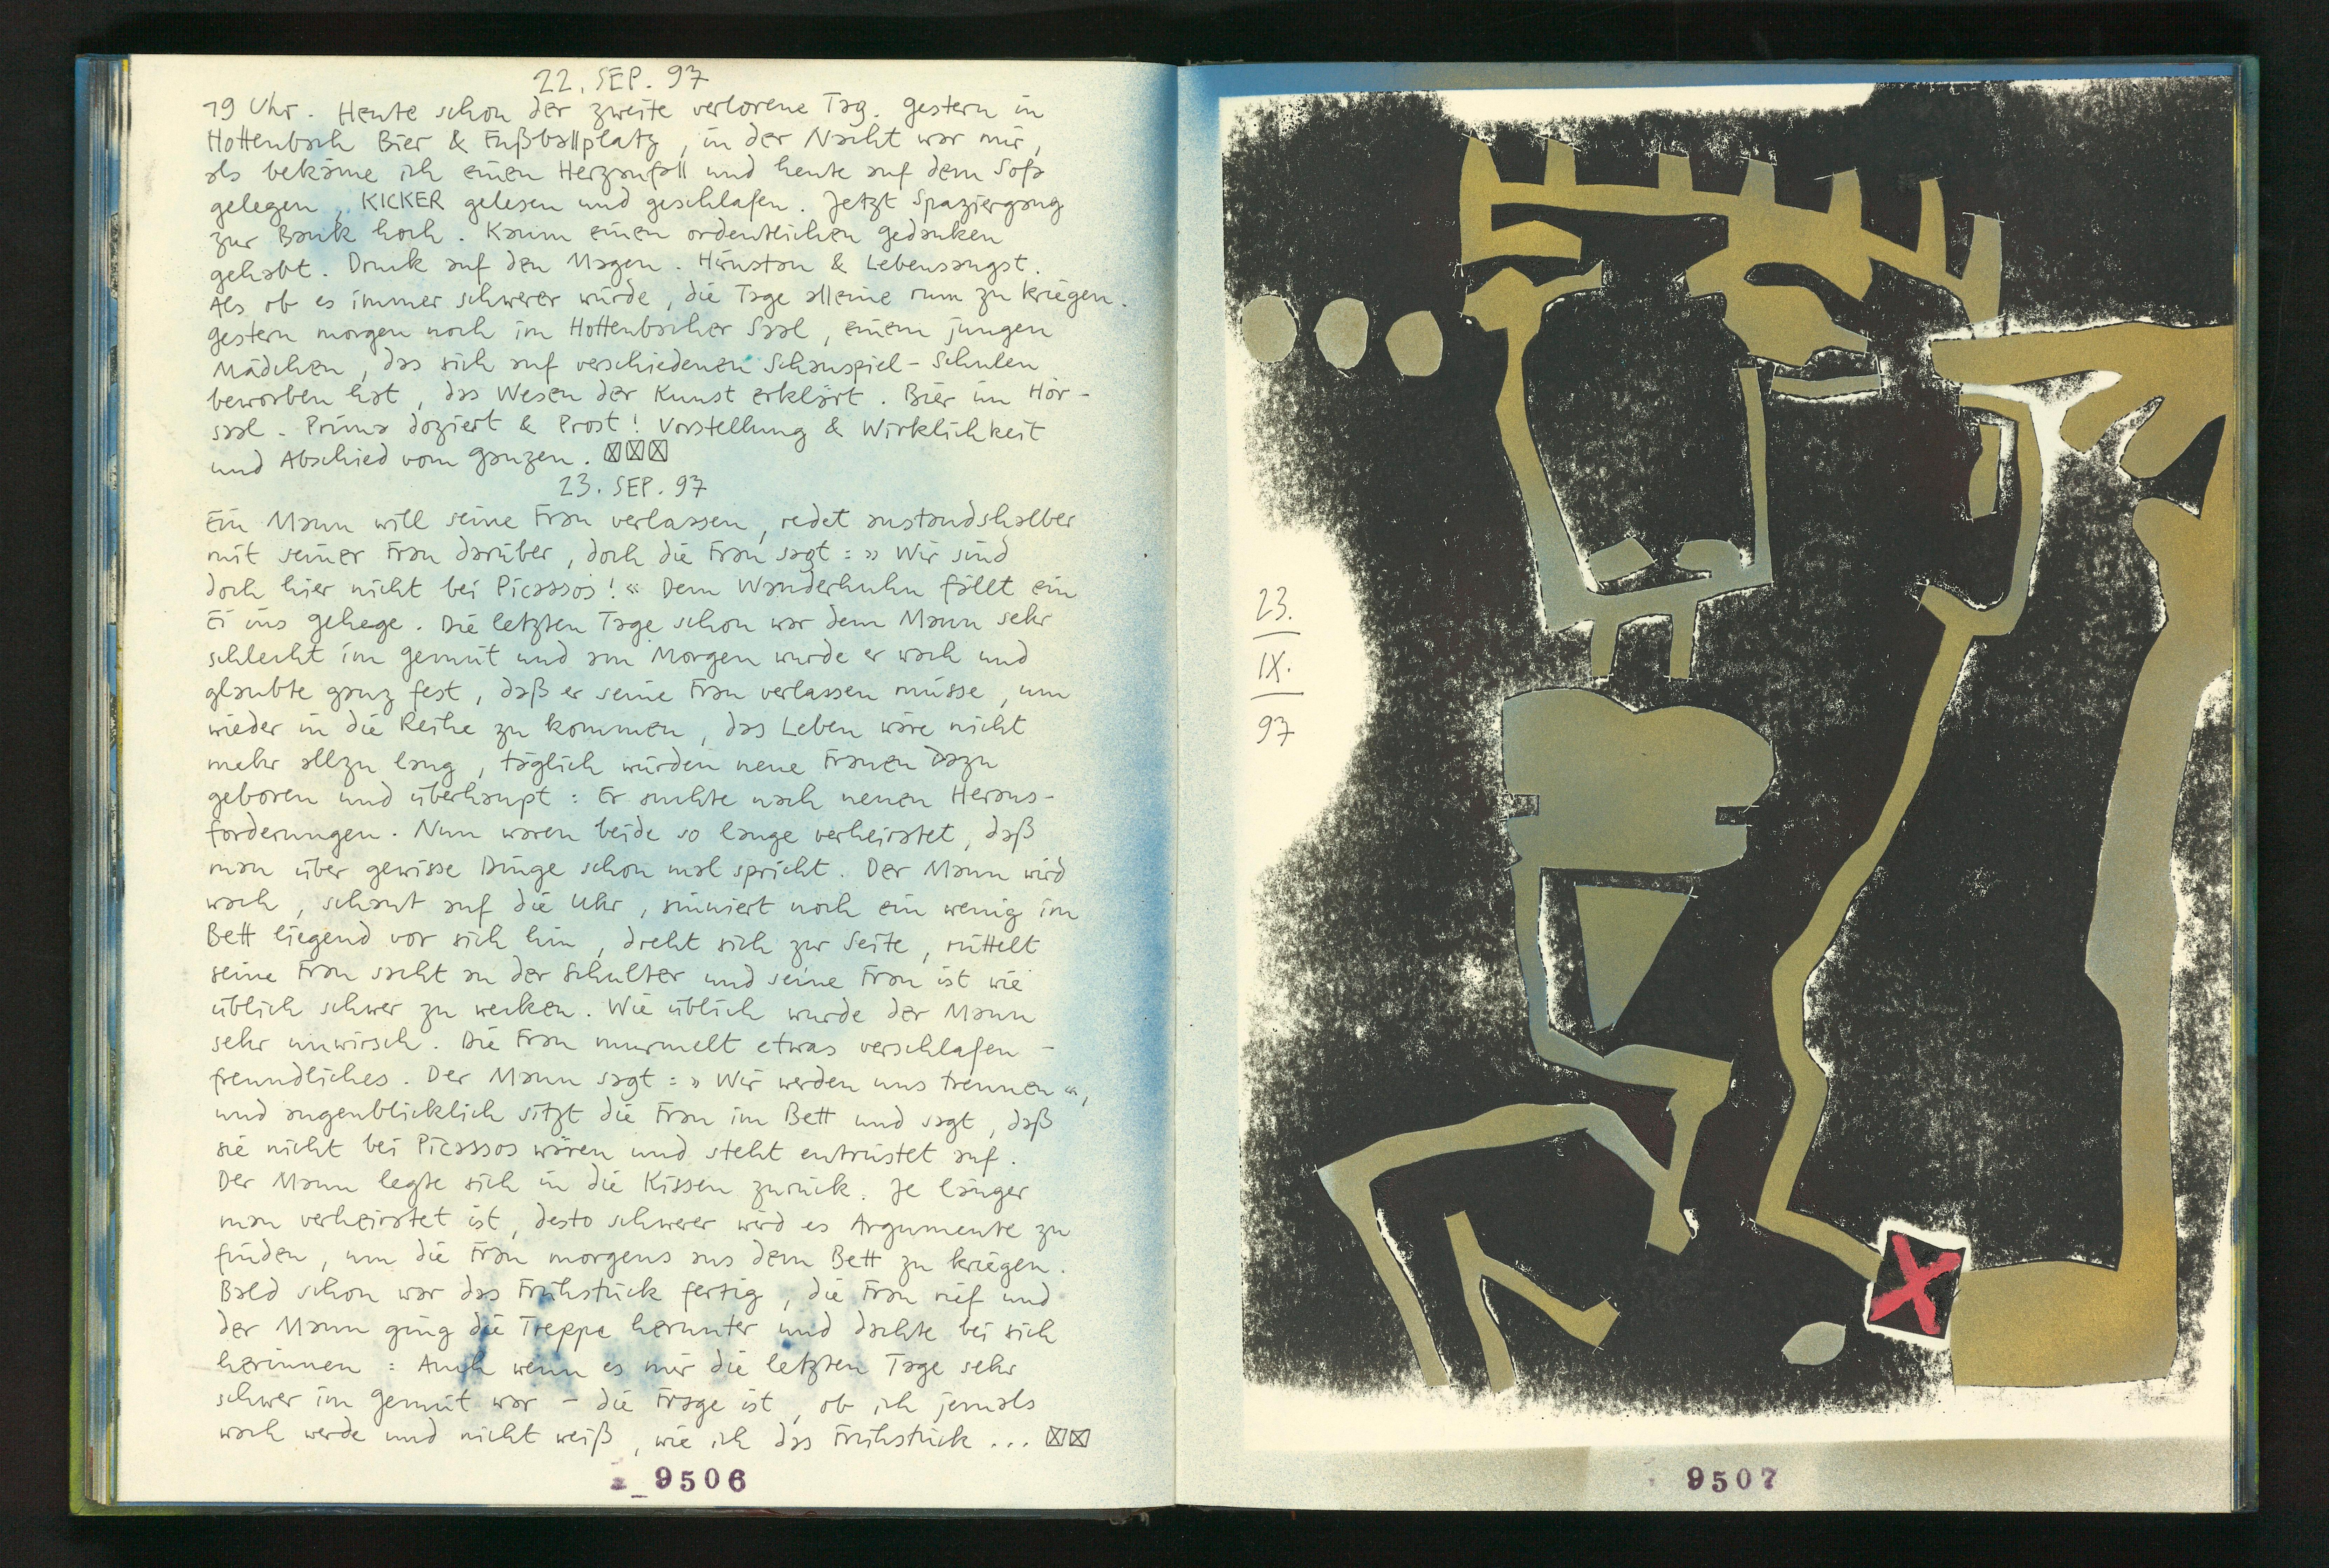 22. SEP. 97
19 Uhr. Heute schon der zweite verlorene Tag. Gestern in
Hottenbach Bier & Fußballplatz, in der Nacht war mir,
als bekäme ich einen Herzanfall und heute auf dem Sofa
gelegen, KICKER gelesen und geschlafen. Jetzt Spaziergang
zur Bank hoch. Kaum einen ordentlichen Gedanken
gehabt. Druck auf den Magen. Hirnstau & Lebensangst.
Als ob es immer schwerer würde, die Tage alleine rum zu kriegen.
Gestern morgen noch im Hottenbacher Saal, einem jungen
Mädchen, das sich auf verschiedenen Schauspiel-Schulen
beworben hat, das Wesen der Kunst erklärt. Bier im Hör-
saal. Prima doziert & Prost! Vorstellung & Wirklichkeit
und Abschied vom Ganzen. ☒☒☒
23. SEP. 97
Ein Mann will seine Frau verlassen, redet anstandshalber
mit seiner Frau darüber, doch die Frau sagt: » Wir sind
doch hier nicht bei Picassos! « Dem Wanderhuhn fällt ein
Ei ins Gehege. Die letzten Tage schon war dem Mann sehr
schlecht im Gemüt und am Morgen wurde er wach und
glaubte ganz fest, daß er seine Frau verlassen müsse, um
wieder in die Reihe zu kommen, das Leben wäre nicht
mehr allzu lang, täglich würden neue Frauen dazu
geboren und überhaupt: Er suchte nach neuen Heraus-
forderungen. Nun waren beide so lange verheiratet, daß
man über gewisse Dinge schon mal spricht. Der Mann wird
wach, schaut auf die Uhr, sinniert noch ein wenig im
Bett liegend vor sich hin, dreht sich zur Seite, rüttelt
seine Frau sacht an der Schulter und seine Frau ist wie
üblich schwer zu wecken. Wie üblich wurde der Mann
sehr unwirsch. Die Frau murmelt etwas verschlafen -
freundliches. Der Mann sagt: » Wir werden uns trennen «,
und augenblicklich sitzt die Frau im Bett und sagt, daß
sie nicht bei Picassos wären und steht entrüstet auf.
Der Mann legte sich in die Kissen zurück. Je länger
man verheiratet ist, desto schwerer wird es Argumente zu
finden, um die Frau morgens aus dem Bett zu kriegen.
Bald schon war das Frühstück fertig, die Frau rief und
der Mann ging die Treppe herunter und dachte bei sich
herinnen: Auch wenn es mir die letzten Tage sehr
schwer im Gemüt war – die Frage ist, ob ich jemals
wach werde und nicht weiß, wie ich das Frühstück ... ☒☒
9506
23.
IX.
97
9507